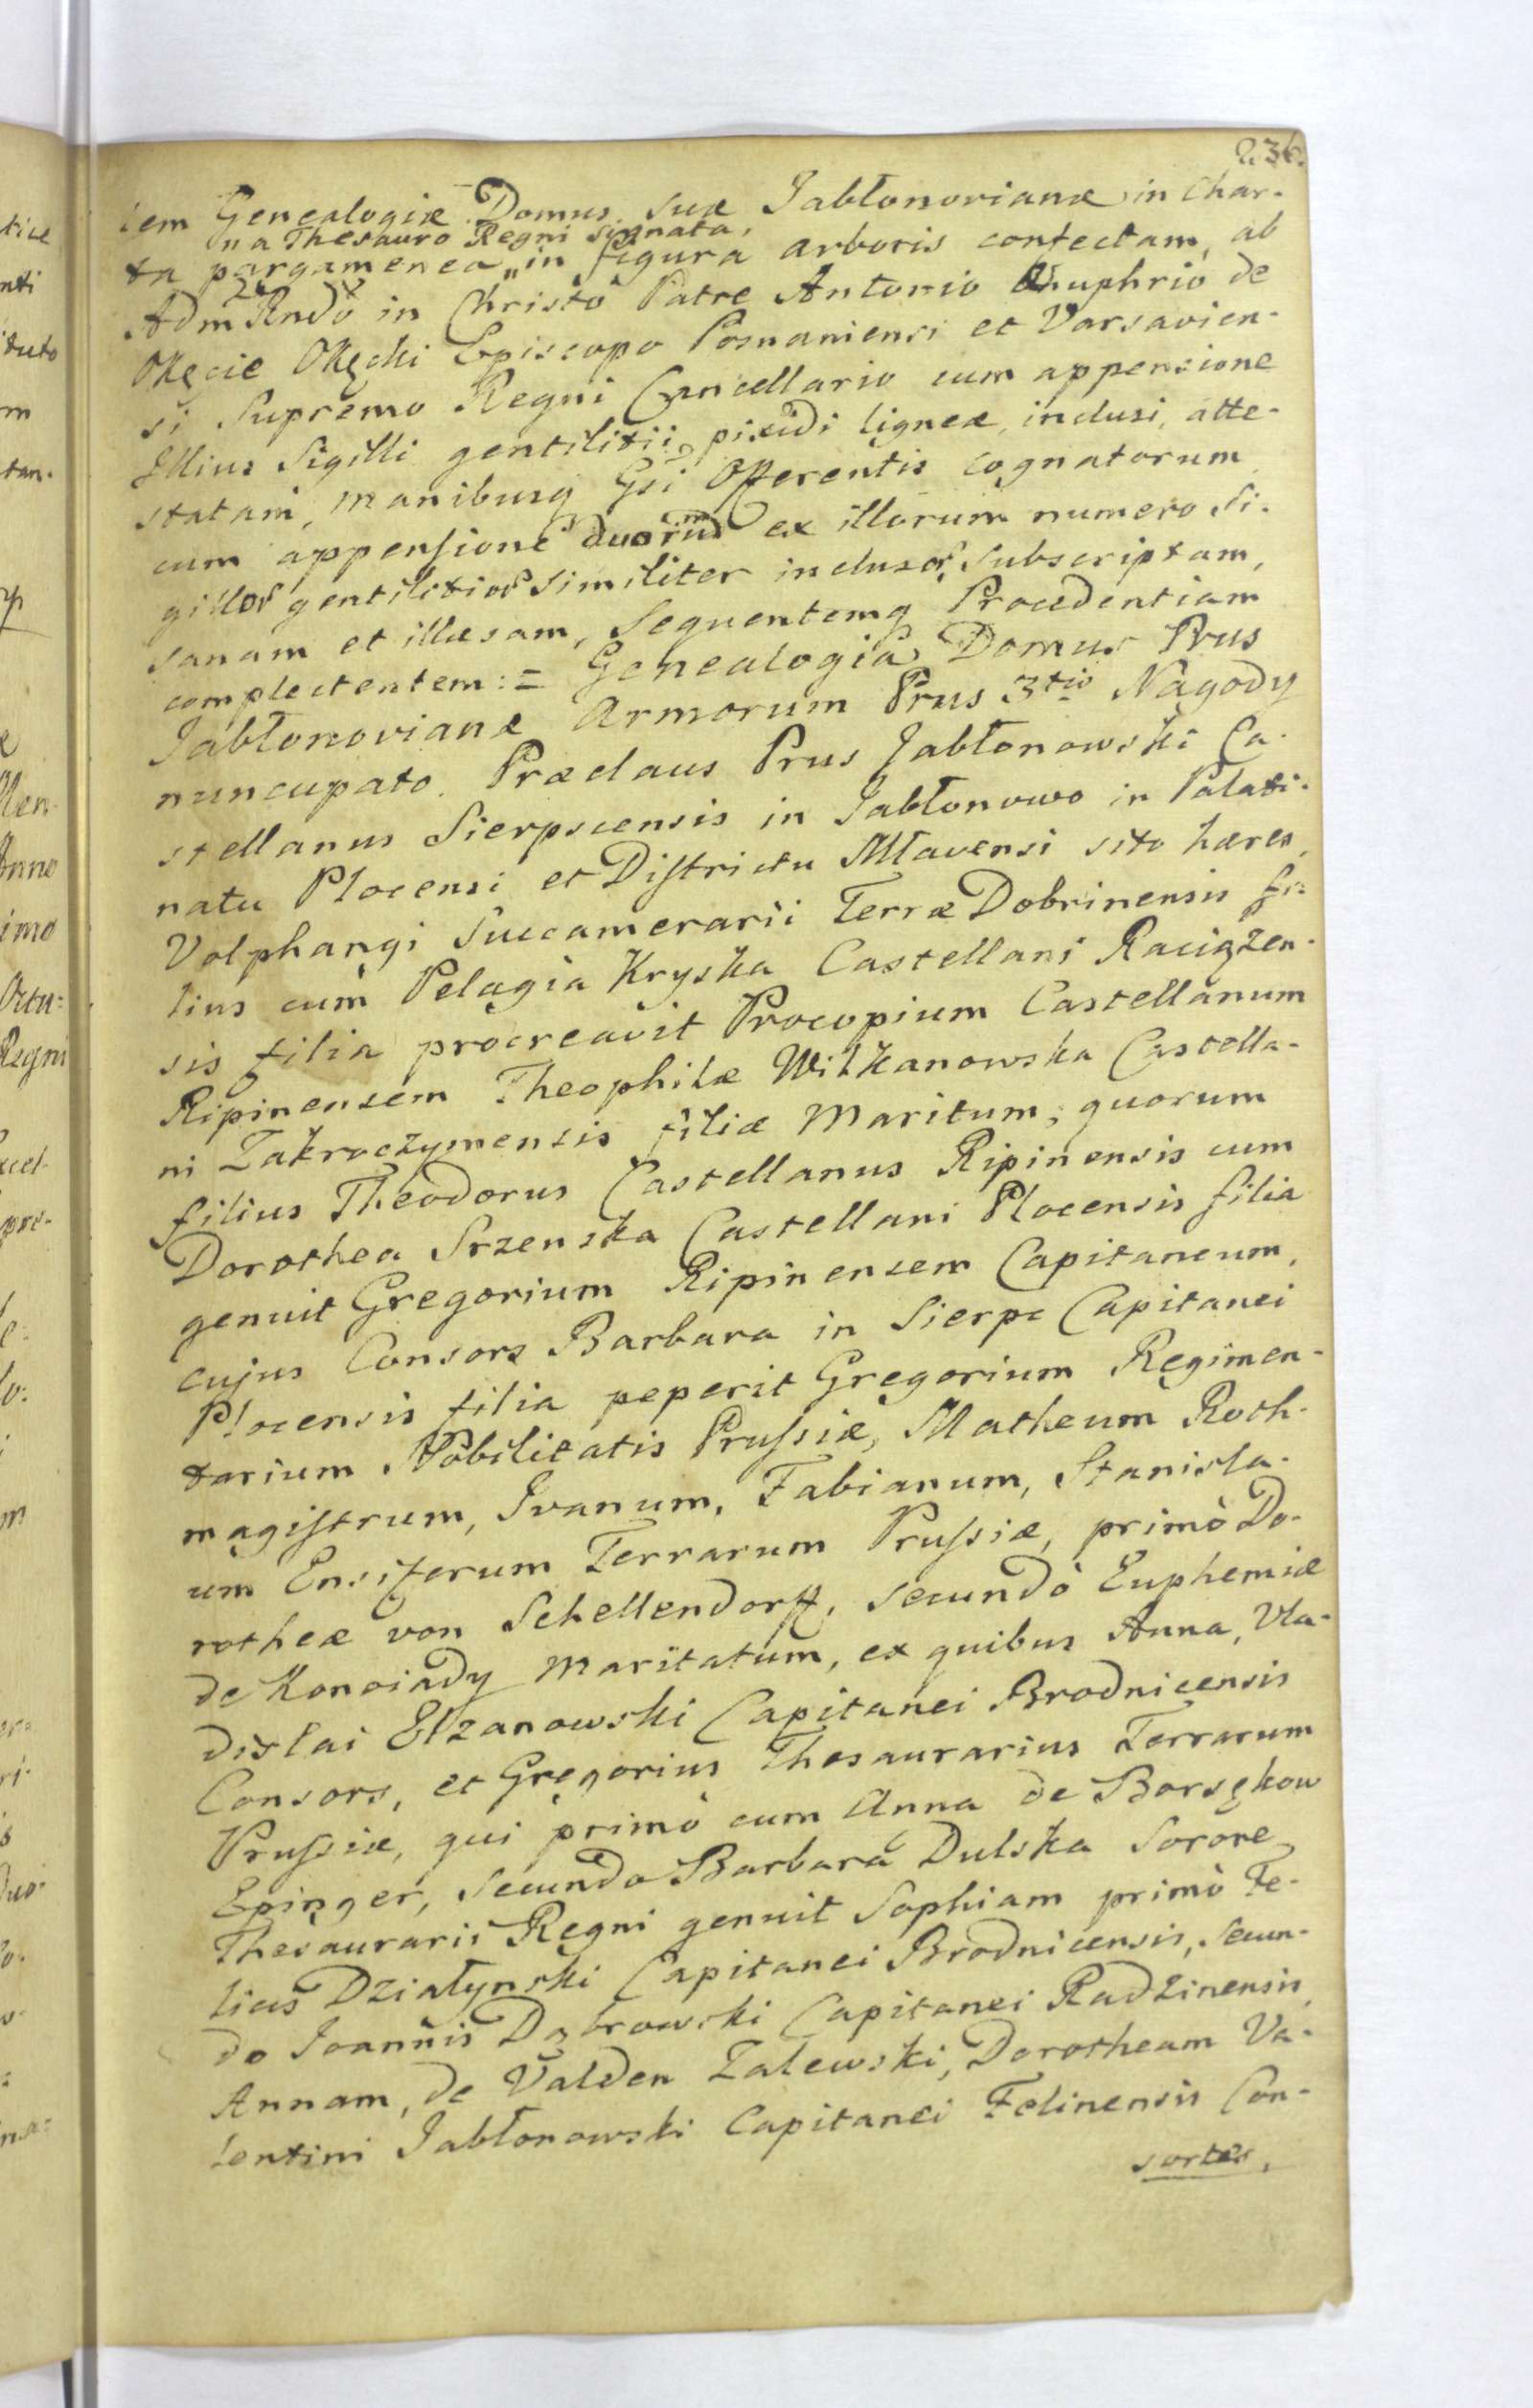 236.
iem Genealogiæ Domus suæ Jabłonovianæ in Char-
"na Thesauro Regni signata,
ta pargamenea "in figura arboris confectam, ab
Adm Rndo in Christo Patre Antonio Onuphrio de
Okęcie Okęcki Episcopo Posnaniensi et Varsavien-
si Supremo Regni Cancellario cum appensione
Illius Sigilli gentilitii, pixidi ligneæ, inclusi, atte-
statam, manibusq Gsi Offerentis cognatorum
cum appensione duorum ex illorum numero Si-
gillor gentilitior similiter inclusor, subscriptam,
sanam et illæsam, Sequentemq Procedentiam
complectentem:= Genealogia Domus Prus
Jabłonovianæ Armorum Prus 3tio Nagody
nuncupato. Præclaus Prus Jabłonowski Ca-
stellanus Sierpscensis in Jabłonowo in Palati-
natu Plocensi et Districtu Mlavensi sito hæres,
Volphangi Succamerarii Terræ Dobrinensis fi=
lius cum Pelagia Kryska Castellani Raciążen-
sis filia procreavit Procopium Castellanum
Ripinensem Theophilæ Wilkanowska Castella-
ni Zakroczymensis filiæ Maritum; quorum
filius Theodorus Castellanus Ripinensis cum
Dorothea Srzenska Castellani Plocensis filia
genuit Gregorium Ripinensem Capitaneum,
cujus Consors Barbara in Sierpc Capitanei
Plocensis filia peperit Gregorium Regimen-
tarium Nobilitatis Prussiæ, Matheum Roth-
magistrum, Ivanum, Fabianum, Stanisla-
um Ensiferum Terrarum Prussiæ, primò Do-
rotheæ von Schellendorff, secundò Euphemiæ
de Konoiady maritatum, ex quibus Anna, Vla-
dislai Elzanowski Capitanei Brodnicensis
Consors, et Gregorius Thesaurarius Terrarum
Prussiæ, qui primò cum Anna de Borsękow
Epinger, secundo Barbara Dulska Sorore
Thesaurarii Regni genuit Sophiam primò Fe-
licis Działynski Capitanei Brodnicensis, secun-
do Joannis Dąbrowski Capitanei Radzinensis,
Annam, de Valden Zalewski, Dorotheam Va-
lentini Jabłonowski Capitanei Felinensis Con-
sortes,